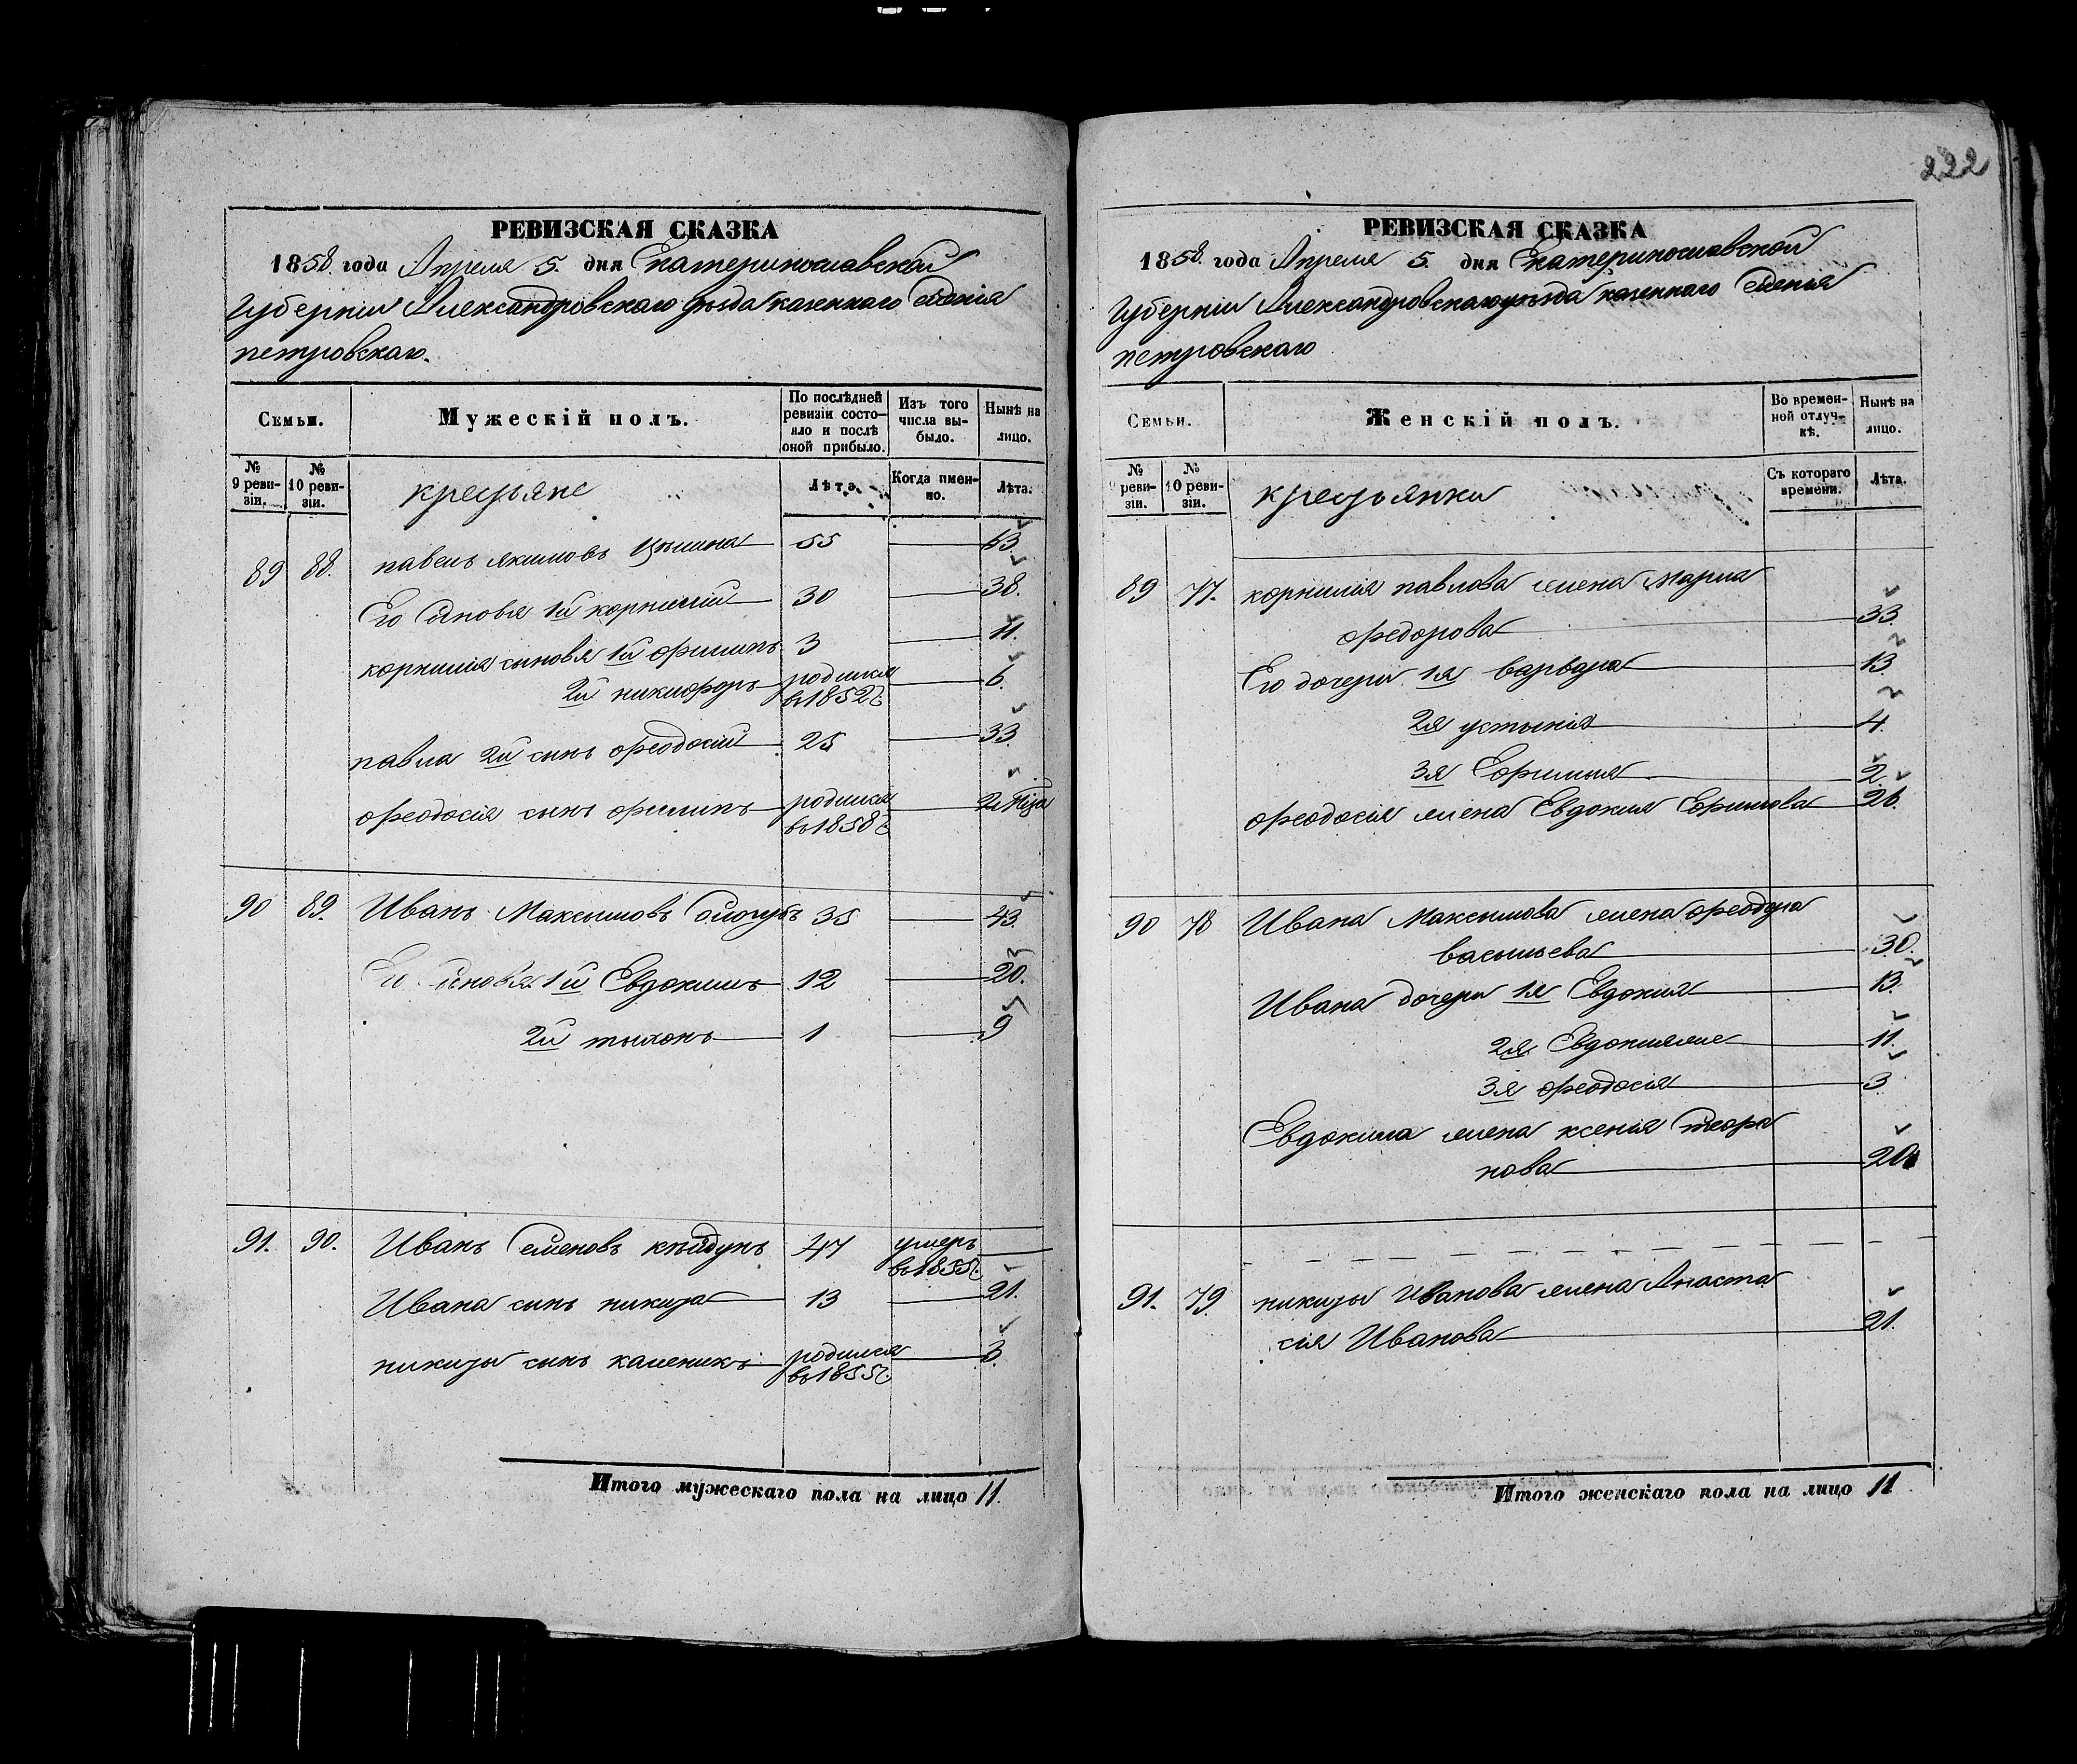 222
РЕВИЗСКАЯ СКАЗКА
1858 года Апреля 5. дня Екатеринославской
Губерніи Александровскаго уѣзда казеннаго Селенія
петровскаго.
Семьи.
Мужескій полъ.
По послѣдней ревизіи состояло и послѣ оной прибыло.
Изъ того числа выбыло.
Нынѣ на лицо.
№ 9 ревизіи.
№ 10 ревизіи.
крестьяне
Лѣта.
Когда именно.
Лѣта.
89 88. павелъ якимовъ 55 63.
Его Сыновья 1й корнилій 30 38.
корнилія сыновья 1й филипъ 3 11.
2й никифоръ родился въ 1852г 6.
павла 2й сынъ феодосій 25 33.
феодосія сынъ филипъ родился въ 1858г
90 89. Иванъ Максымовъ Сологубъ 35 43.
Его Сыновья 1й Евдокимъ 12 20.
2й тыхонъ 1 9
91. 90. Иванъ Семеновъ 47 умеръ въ 1855г
Ивана сынъ никита 13 21.
никиты сынъ каленикъ родился въ 1855г 3.
Итого мужескаго пола на лицо 11.
РЕВИЗСКАЯ СКАЗКА
1858 года Апреля 5. дня Екатеринославской
Губерніи Александровскаго уѣзда казеннаго Селенія
петровскаго
Семьи.
Женскій полъ.
Во временной отлучкѣ.
Нынѣ на лицо.
№ 9 ревизіи.
№ 10 ревизіи.
крестьянки
Съ котораго времени.
Лѣта.
89 77. корнилія павлова жена Мария
федорова 33.
Его дочери 1я варвара 13.
2я устынія 4.
3я Ефимия 2
феодосія жена Евдокия Ефимова 26.
90 78 Ивана Максымова жена феодора
васыльева 30.
Ивана дочери 1я Евдокия 13.
2я Евдокия 11.
3я феодосія 3
Евдокима жена ксенія
нова 20
91. 79. никиты Иванова жена Анаста
сія Иванова 21.
Итого женскаго пола на лицо 11